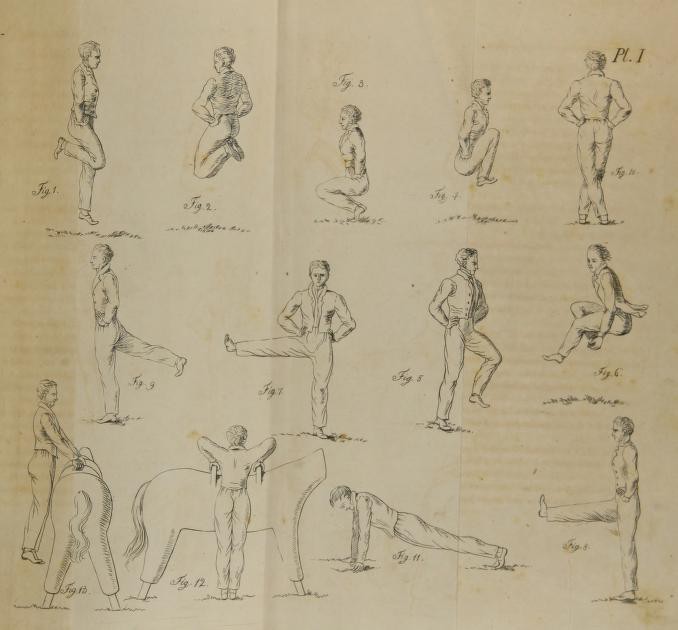 Pl. I
Fig. 1.
Fig. 2.
Fig. 3.
Fig. 4.
Fig. 10.
Fig. 9
Fig. 7
Fig. 5
Fig. 6.
Fig. 13.
Fig. 12.
Fig. 11.
Fig. 8.